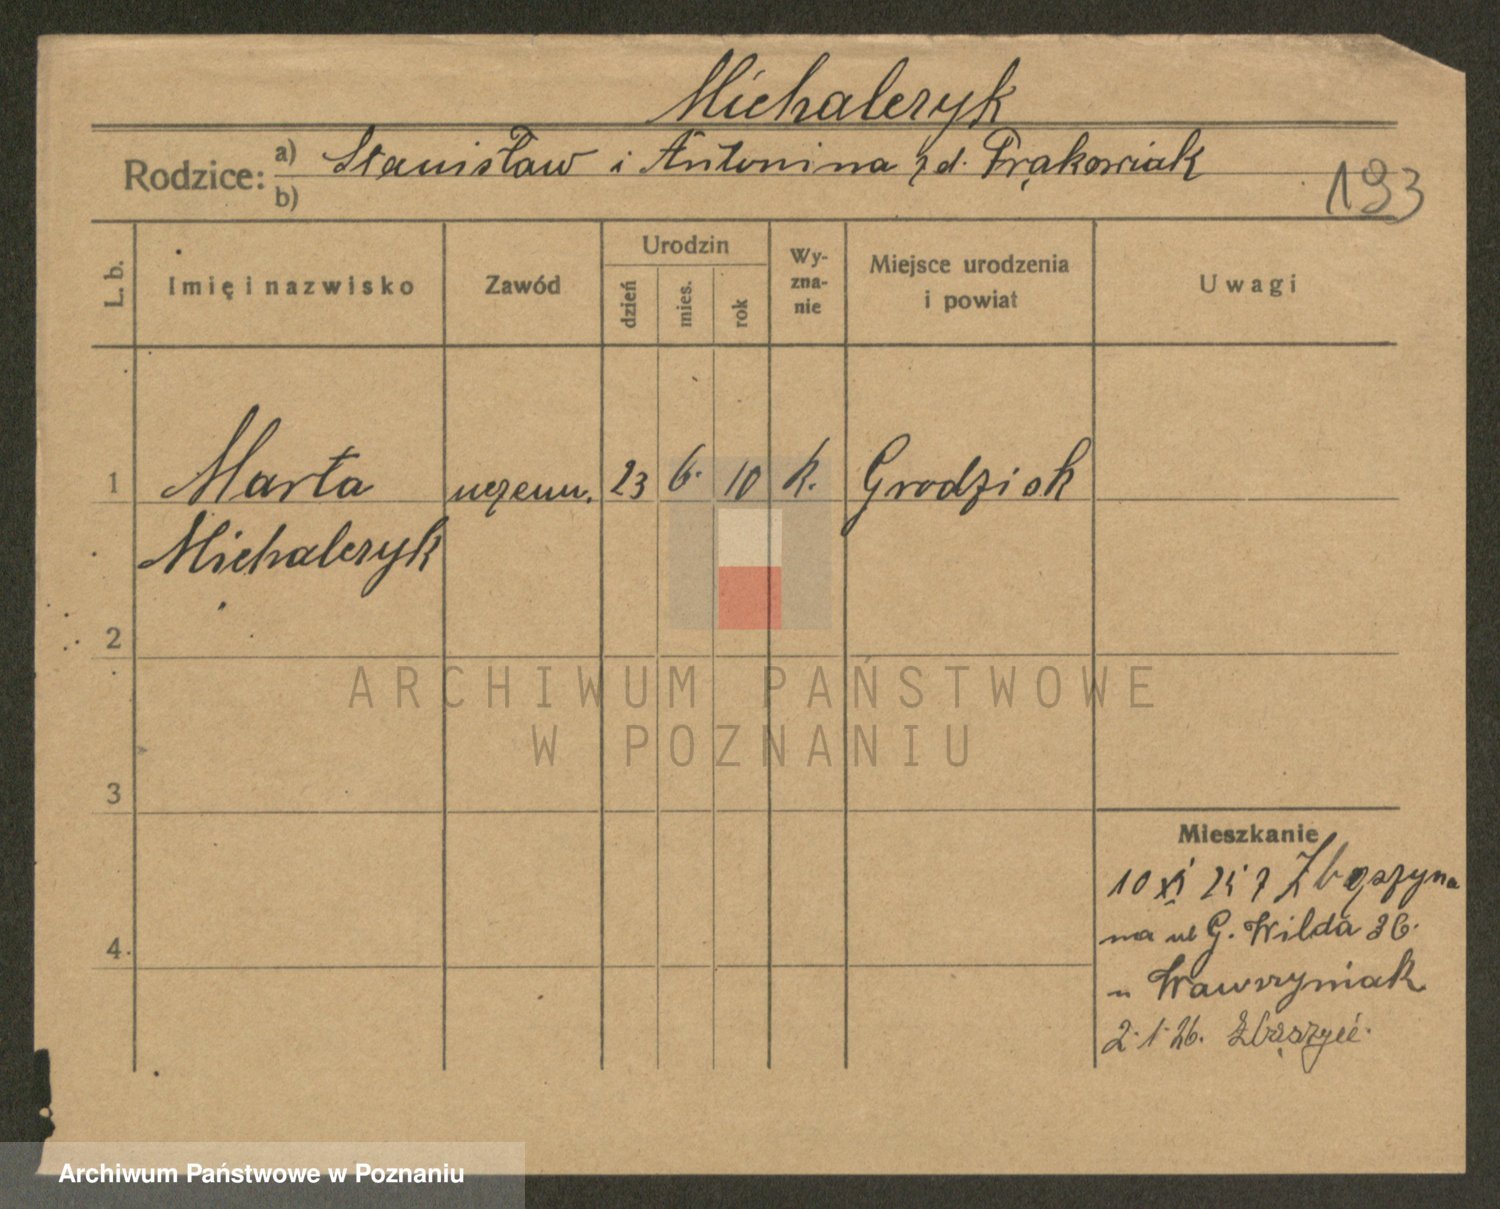 Michalczyk
Rodzice: a) Stanisław i Antonina z d. Prąkowiak
b)
193
L. b.
Imię i nazwisko
Zawód
Urodzin
dzień
mies.
rok
Wy-
zna-
nie
Miejsce urodzenia
i powiat
Uwagi
1 Marta uczenn. 23 6. 10 k. Grodzisk
Michalczyk
2
3
4.
ARCHIWUM PAŃSTWOWE
W POZNANIU
Mieszkanie
10 XI 25 z Zbąszyna
na ul G. Wilda 36.
u Wawrzyniak
2.1.26. Zbąszyń.
Archiwum Państwowe w Poznaniu